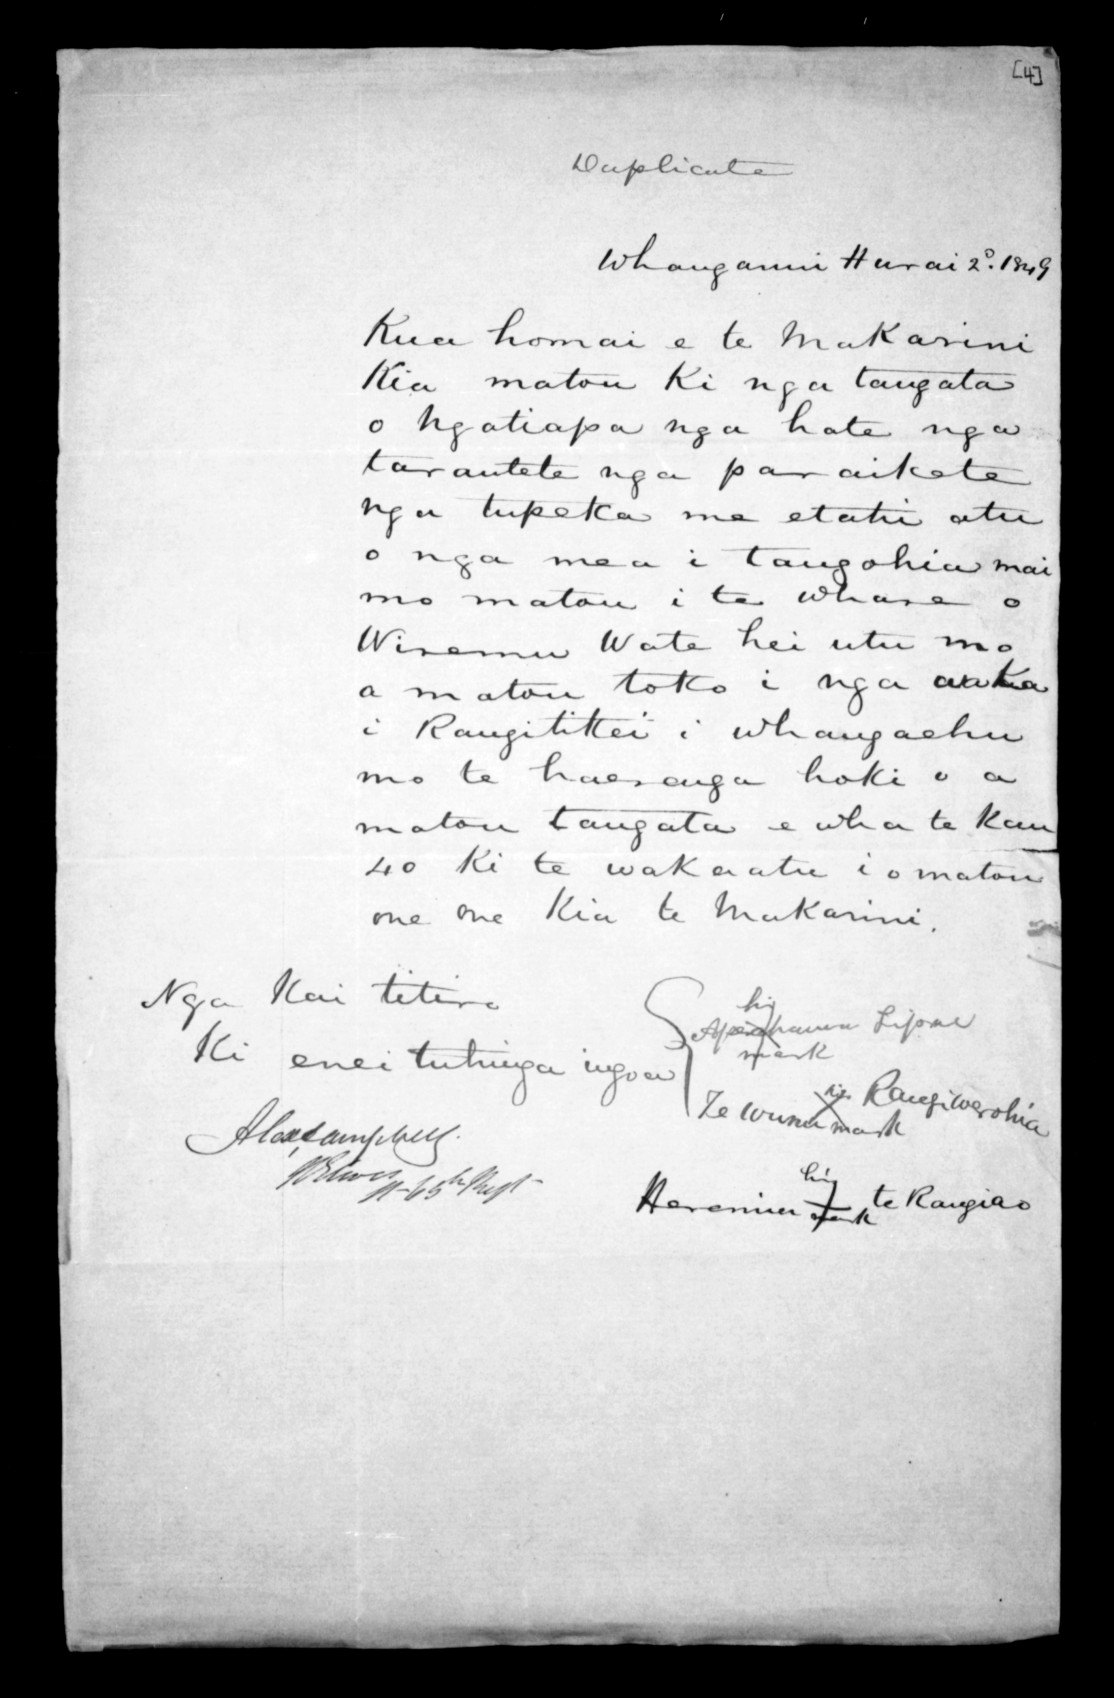 [4]
Duplicate
Whanganui Hurai 2º. 1849
Kua homai e te Makarini
Kia matou Ki nga tangata
o Ngatiapa nga hate nga
tarautete nga paraikete
nga tupeka me etahi atu
o nga mea i tangohia mai
mo matou i te whare o
Wiremu Wate hei utu mo
a matou toko i nga waka
i Rangitikei i whangaehu
mo te haerenga hoki o a
matou tangata e wha te Kau
40 Ki te wakaatu i o matou
one one Kia te Makarini.
Nga Kai titiro
Ki enei tuhinga ingoa
his
Aperahama Tipae
mark
his
Te Wunu x Rangiwerohia
mark
Alex Campbell
H 65th Regt
his
Heremia x te Rangiao
mark